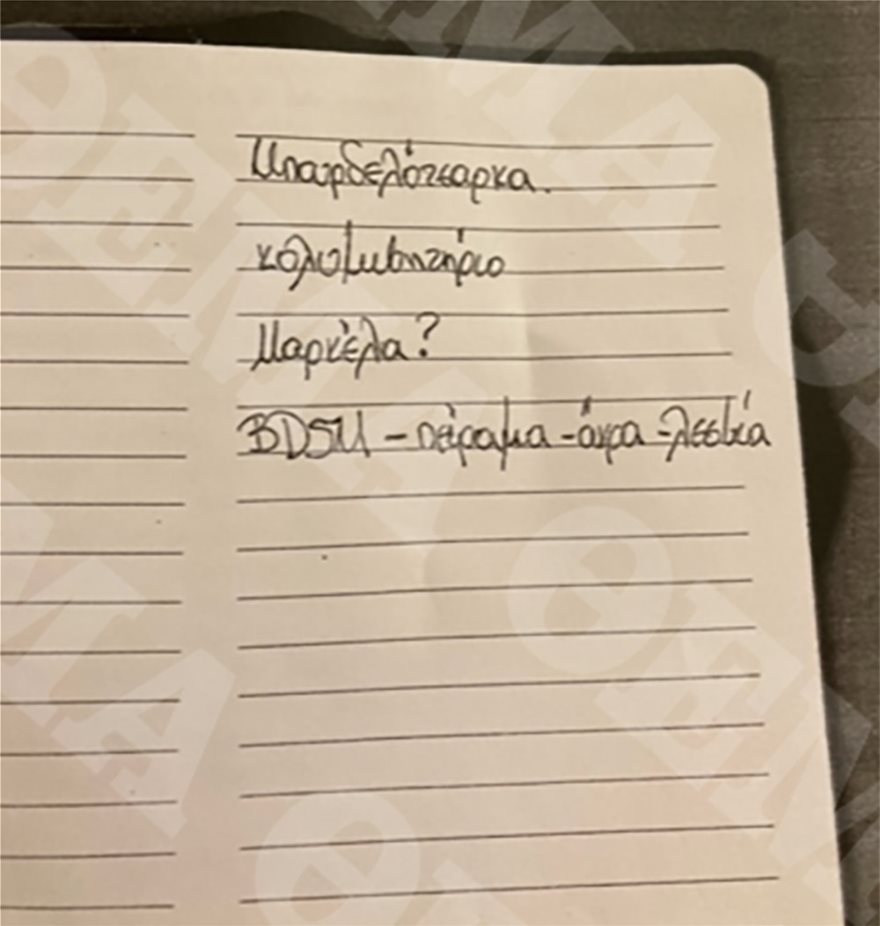 Μπουρδελότσαρκα.
κολυμβητήριο
Μαρκέλα?
BDSM - πείραμα - άκρα - λεσβία